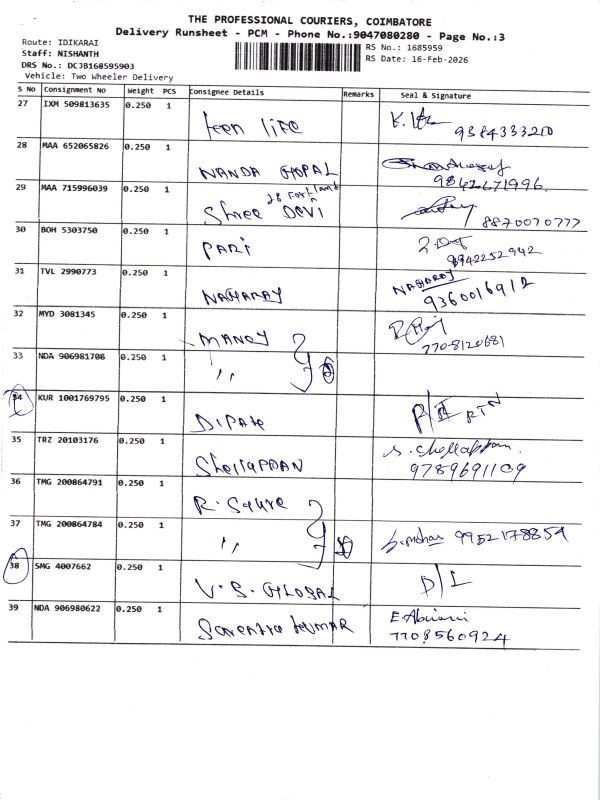 THE PROFESSIONAL COURIERS, COIMBATORE
Delivery Runsheet - PCM - Phone No.:9047080280 - Page No.:3
Route: IDIKARAI
Staff: NISHANTH
DRS No.: DCJB168595903
Vehicle: Two Wheeler Delivery
RS No.: 1685959
RS Date: 16-Feb-2026
S No Consignment No Weight PCS Consignee Details Remarks Seal & Signature
27 IXM 509813635 0.250 1 teen life 9384333210
28 MAA 652065826 0.250 1 NANDA GOPAL 9842671996
29 MAA 715996039 0.250 1 Shree DEVI 8870070777
30 BOH 5303750 0.250 1 PARI 8942252942
31 TVL 2990773 0.250 1 NAHARAY NAHARAY 9360016912
32 MYD 3081345 0.250 1 MANOY 7708120681
33 NDA 906981708 0.250 1 ,,
34 KUR 1001769795 0.250 1 DIPAK RTN
35 TRZ 20103176 0.250 1 Shellappan S. Chellappan 9789691109
36 TMG 200864791 0.250 1 R. Squre
37 TMG 200864784 0.250 1 ,, 9952178854
38 SMG 4007662 0.250 1 V. S. GLOBAL D/L
39 NDA 906980622 0.250 1 Sarentra kumar E. Abirami 7708560924